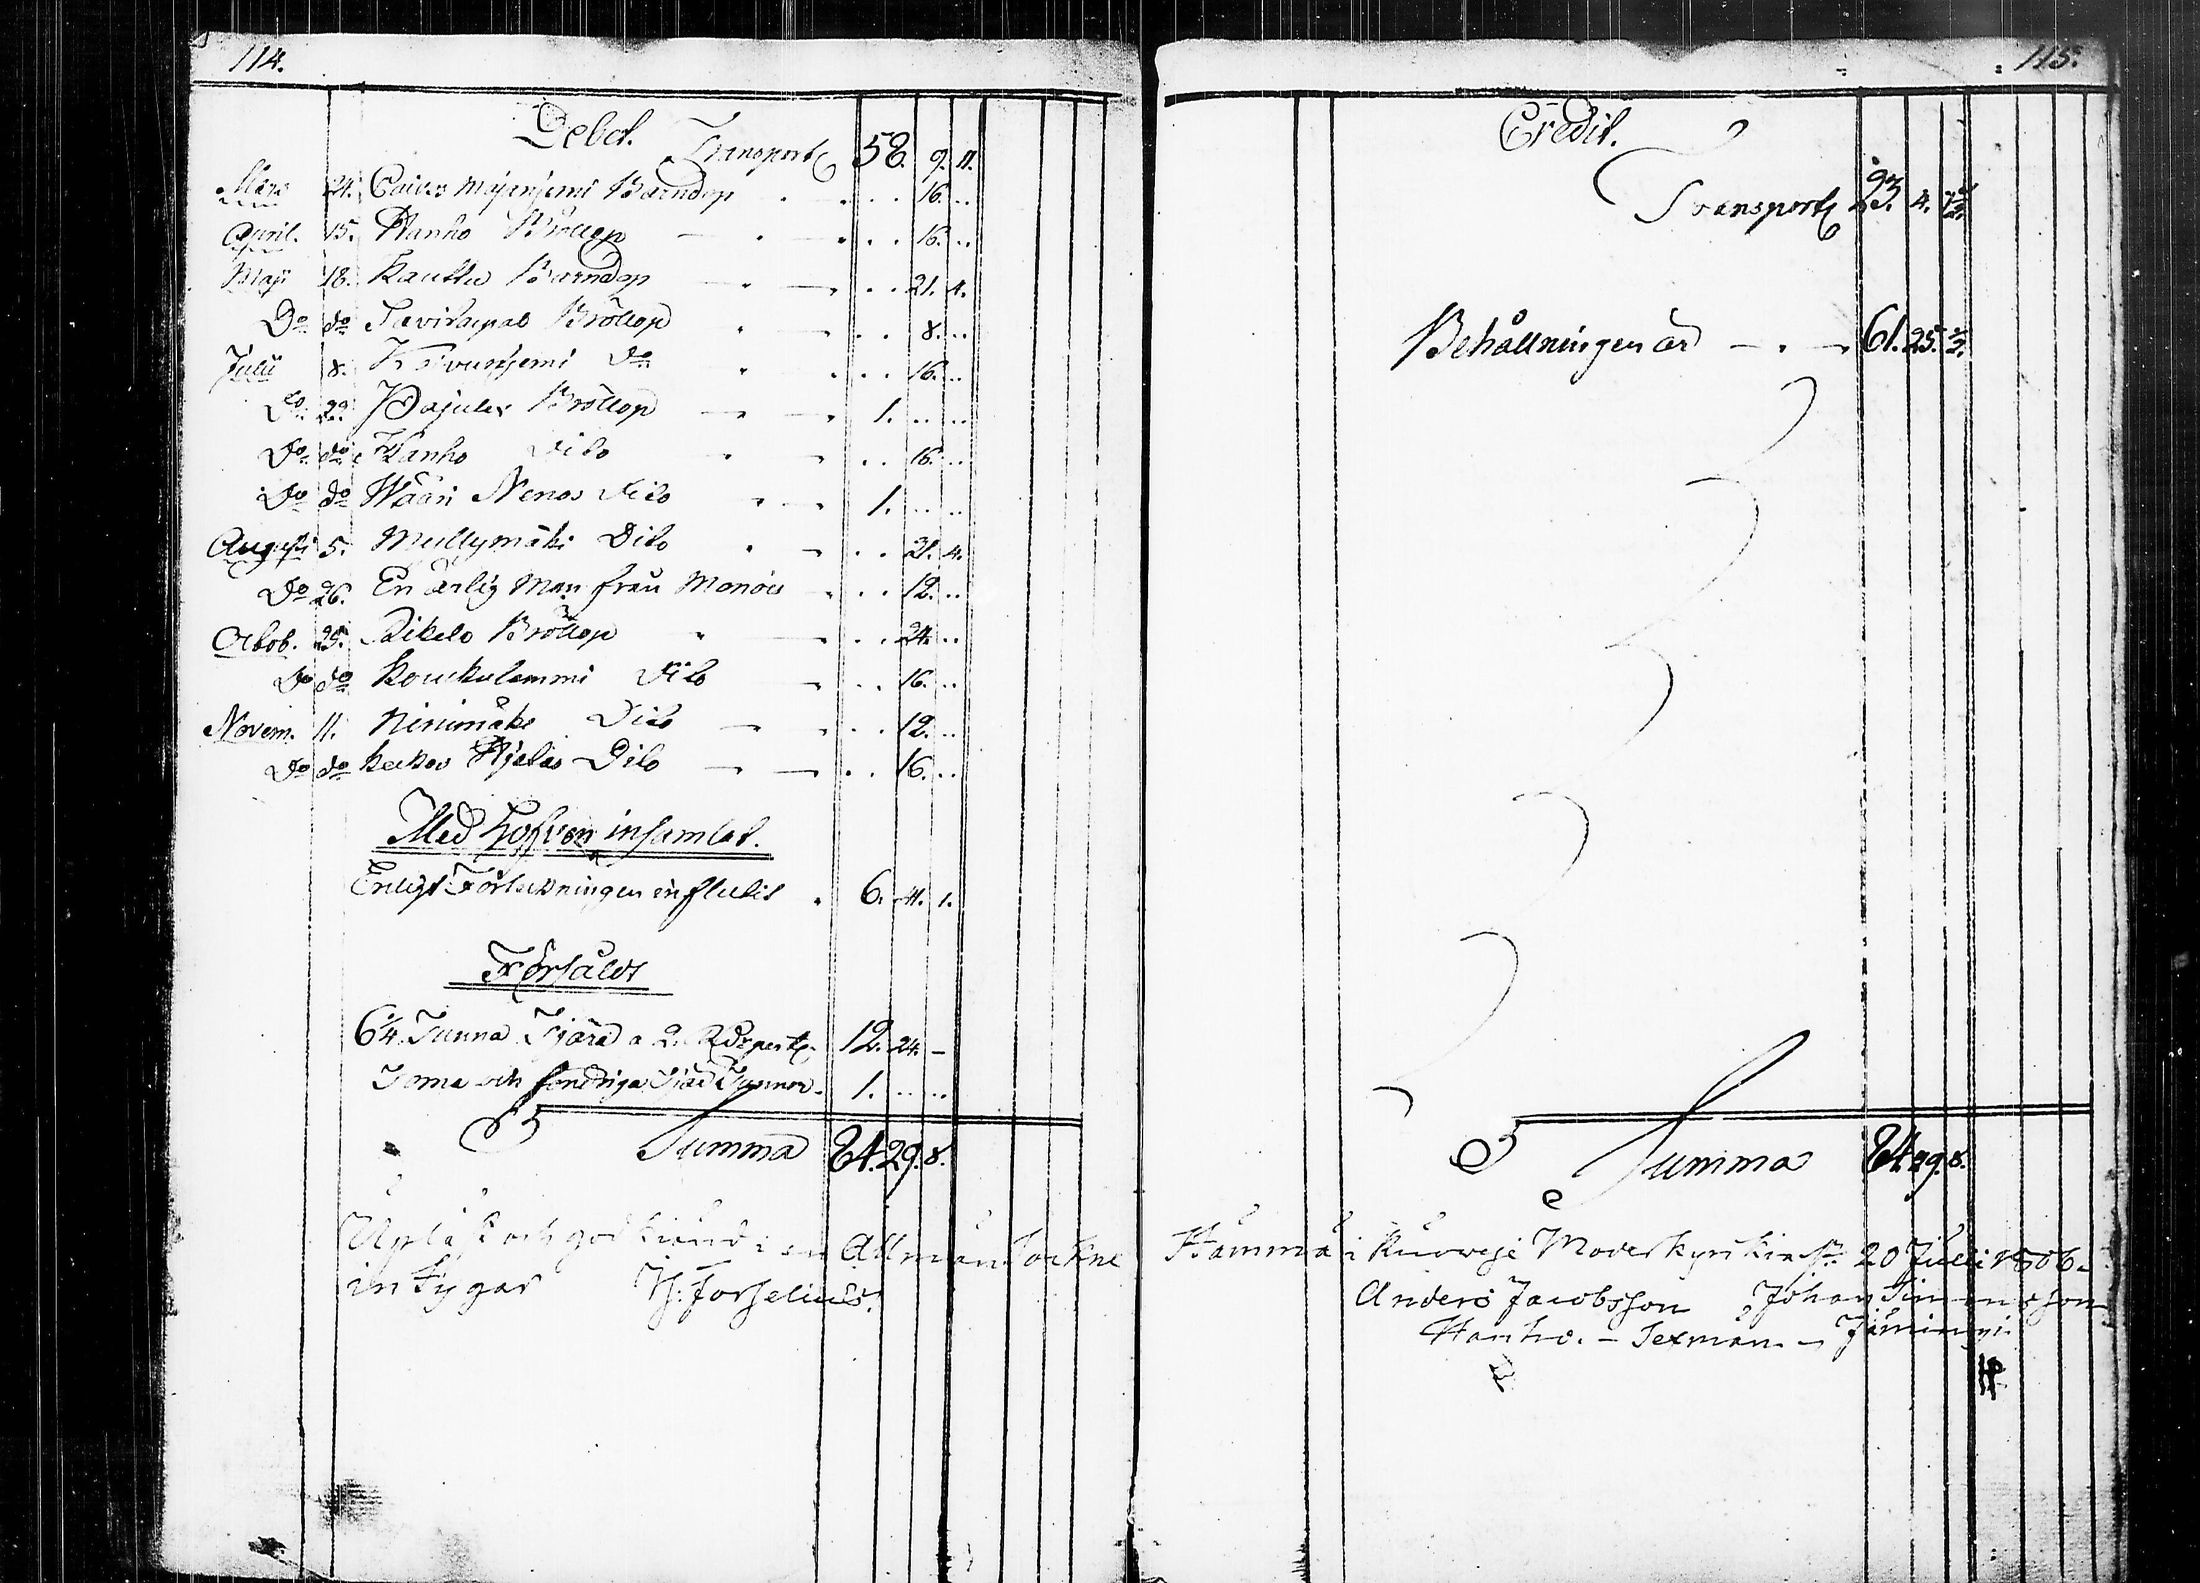 114.
Debet.
Transport 58. 9. 11.
Mars 24. Majaniemi Barndop . . . 16. ..
April. 15. Hanho Bröllop — . . . 16. ..
Maji 18. Kauttu Barndop . — . . 21. 4.
Do do Bröllop . . . 8. ..
Julii 8. do . . . 16. ..
Do 29. Pajula Bröllop — — 1. .. ..
Do do Hanho Dito . . . 16. ..
Do do Wääri Nenos Dito . — 1. .. ..
Augusti 5. Myllymäki Dito . — . . 21. 4.
Do 26. En ärlig Man från . . . 12. ..
Octob. 25. Bröllop . — . . 24. ..
Do do Dito — . . 16. ..
Novem. 11. Ninimäki Dito — . . . 12. ..
Do do Dito — — . . 16. ..
Med Hofven insamlat.
Enligt Förtekningen influtit . 6. 41. 1.
Försåldt
6¼ Tunna Tjära a 2 Rdr per t. 12. 24. —
Toma och söndriga Tjär Tunnor. 1. .. ..
Summa 84. 29. 8.
Upläst och godkiänd i en Allmän Sockne
intygar H: Forselius.
115.
Credit.
Transport 23. 4. 7⅔.
Behållningen är — . — 61. 25. ⅓.
Summa 84. 29. 8.
Stämma i Ruovesi Moderkyrkia d. 20 Julii 1806.
Anders Jacobsson Johan Simonsson
Hanho. — Sexman. — Jäminki